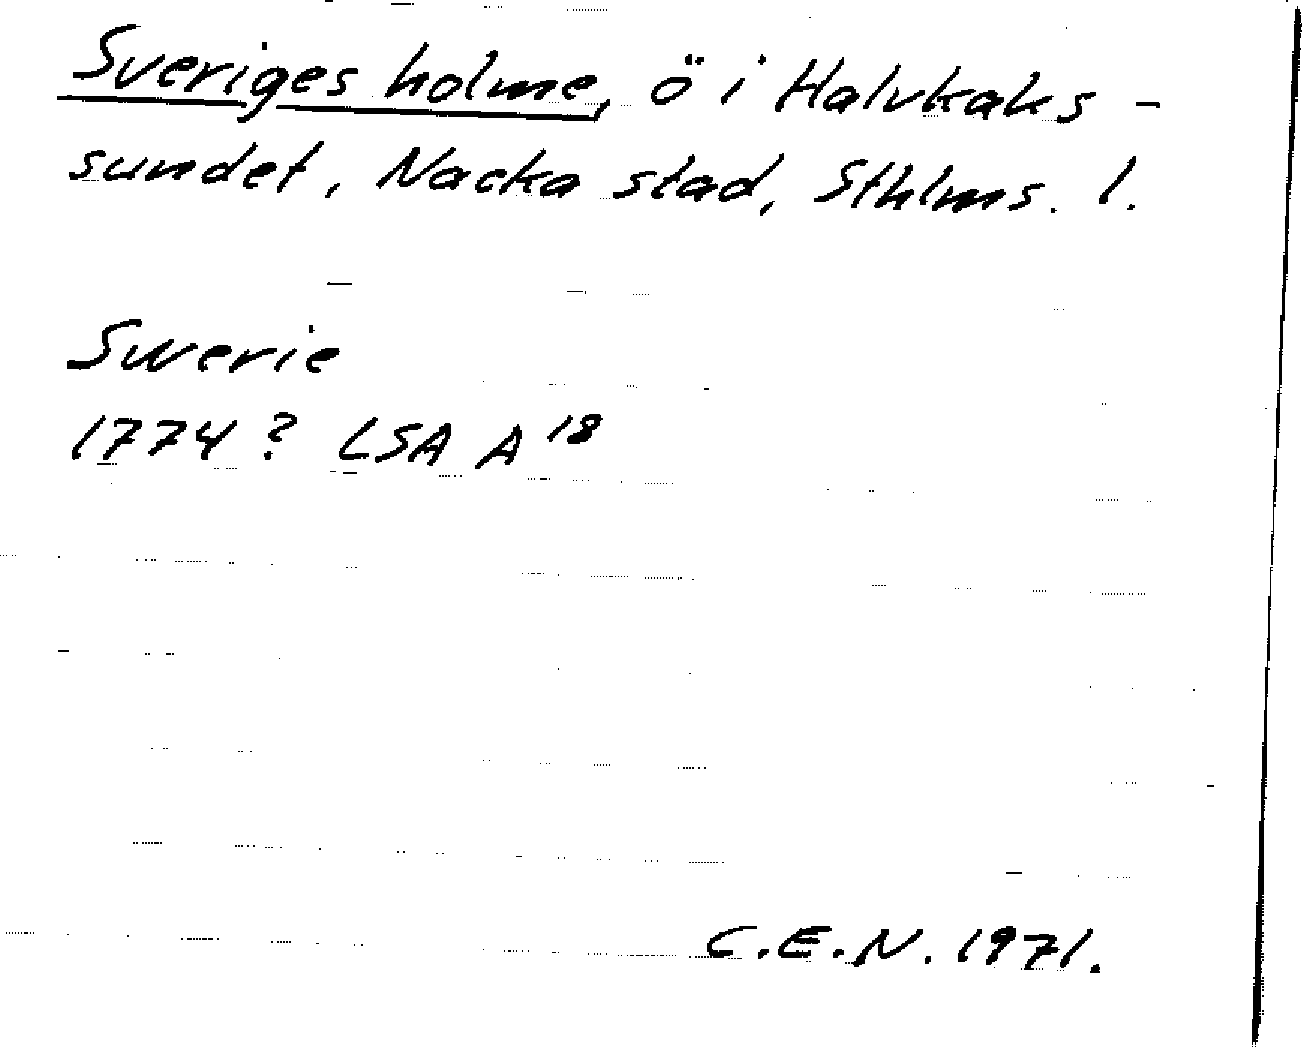 Sveriges holme, ö i Halvkaks-
sundet, Nacka stad, Sthlms. l.
Swerie
1774? LSA A 18
C.E.N. 1971.